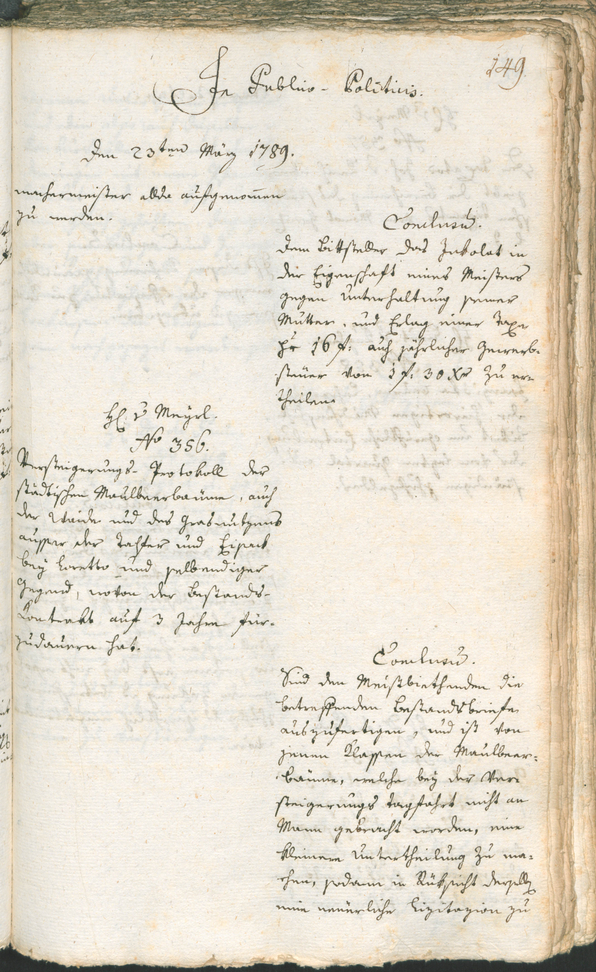 149.
In Publico-Politicis.
Den 23ten März 1789.
machermeister allda aufgenommen
zu werden.
Conclusũ.
Dem Bittsteller das Inkolat in
der Eigenschaft eines Meisters
gegen Unterhaltung seiner
Mutter, und Erlag einer Taxe
pr 16 f. auch jährlicher Gewerb-
steuer von 1 f. 30 Xr zu er-
theilen.
H. v Mayrl.
No 356.
Versteigerungs-Protokoll der
städtischen Maulbeerbäume, auch
der Waide und des Grasnutzens
ausser der Talfer und Eisack
bey Loretto und selbendiger
Gegend, wovon der Bestands-
Kontrakt auf 3 Jahre fur-
zudauern hat.
Conclusũ.
Sind den Meistbiethenden die
betreffenden Bestandsbriefe
auszufertigen, und ist von
jenen Klassen der Maulbeer-
bäume, welche bey der Ver-
steigerungs Tagfahrt nicht an
Mann gebracht worden, eine
kleinere Untertheilung zu ma-
chen, sodann in Rüksicht derselben
eine neuerliche Lizitazion zu